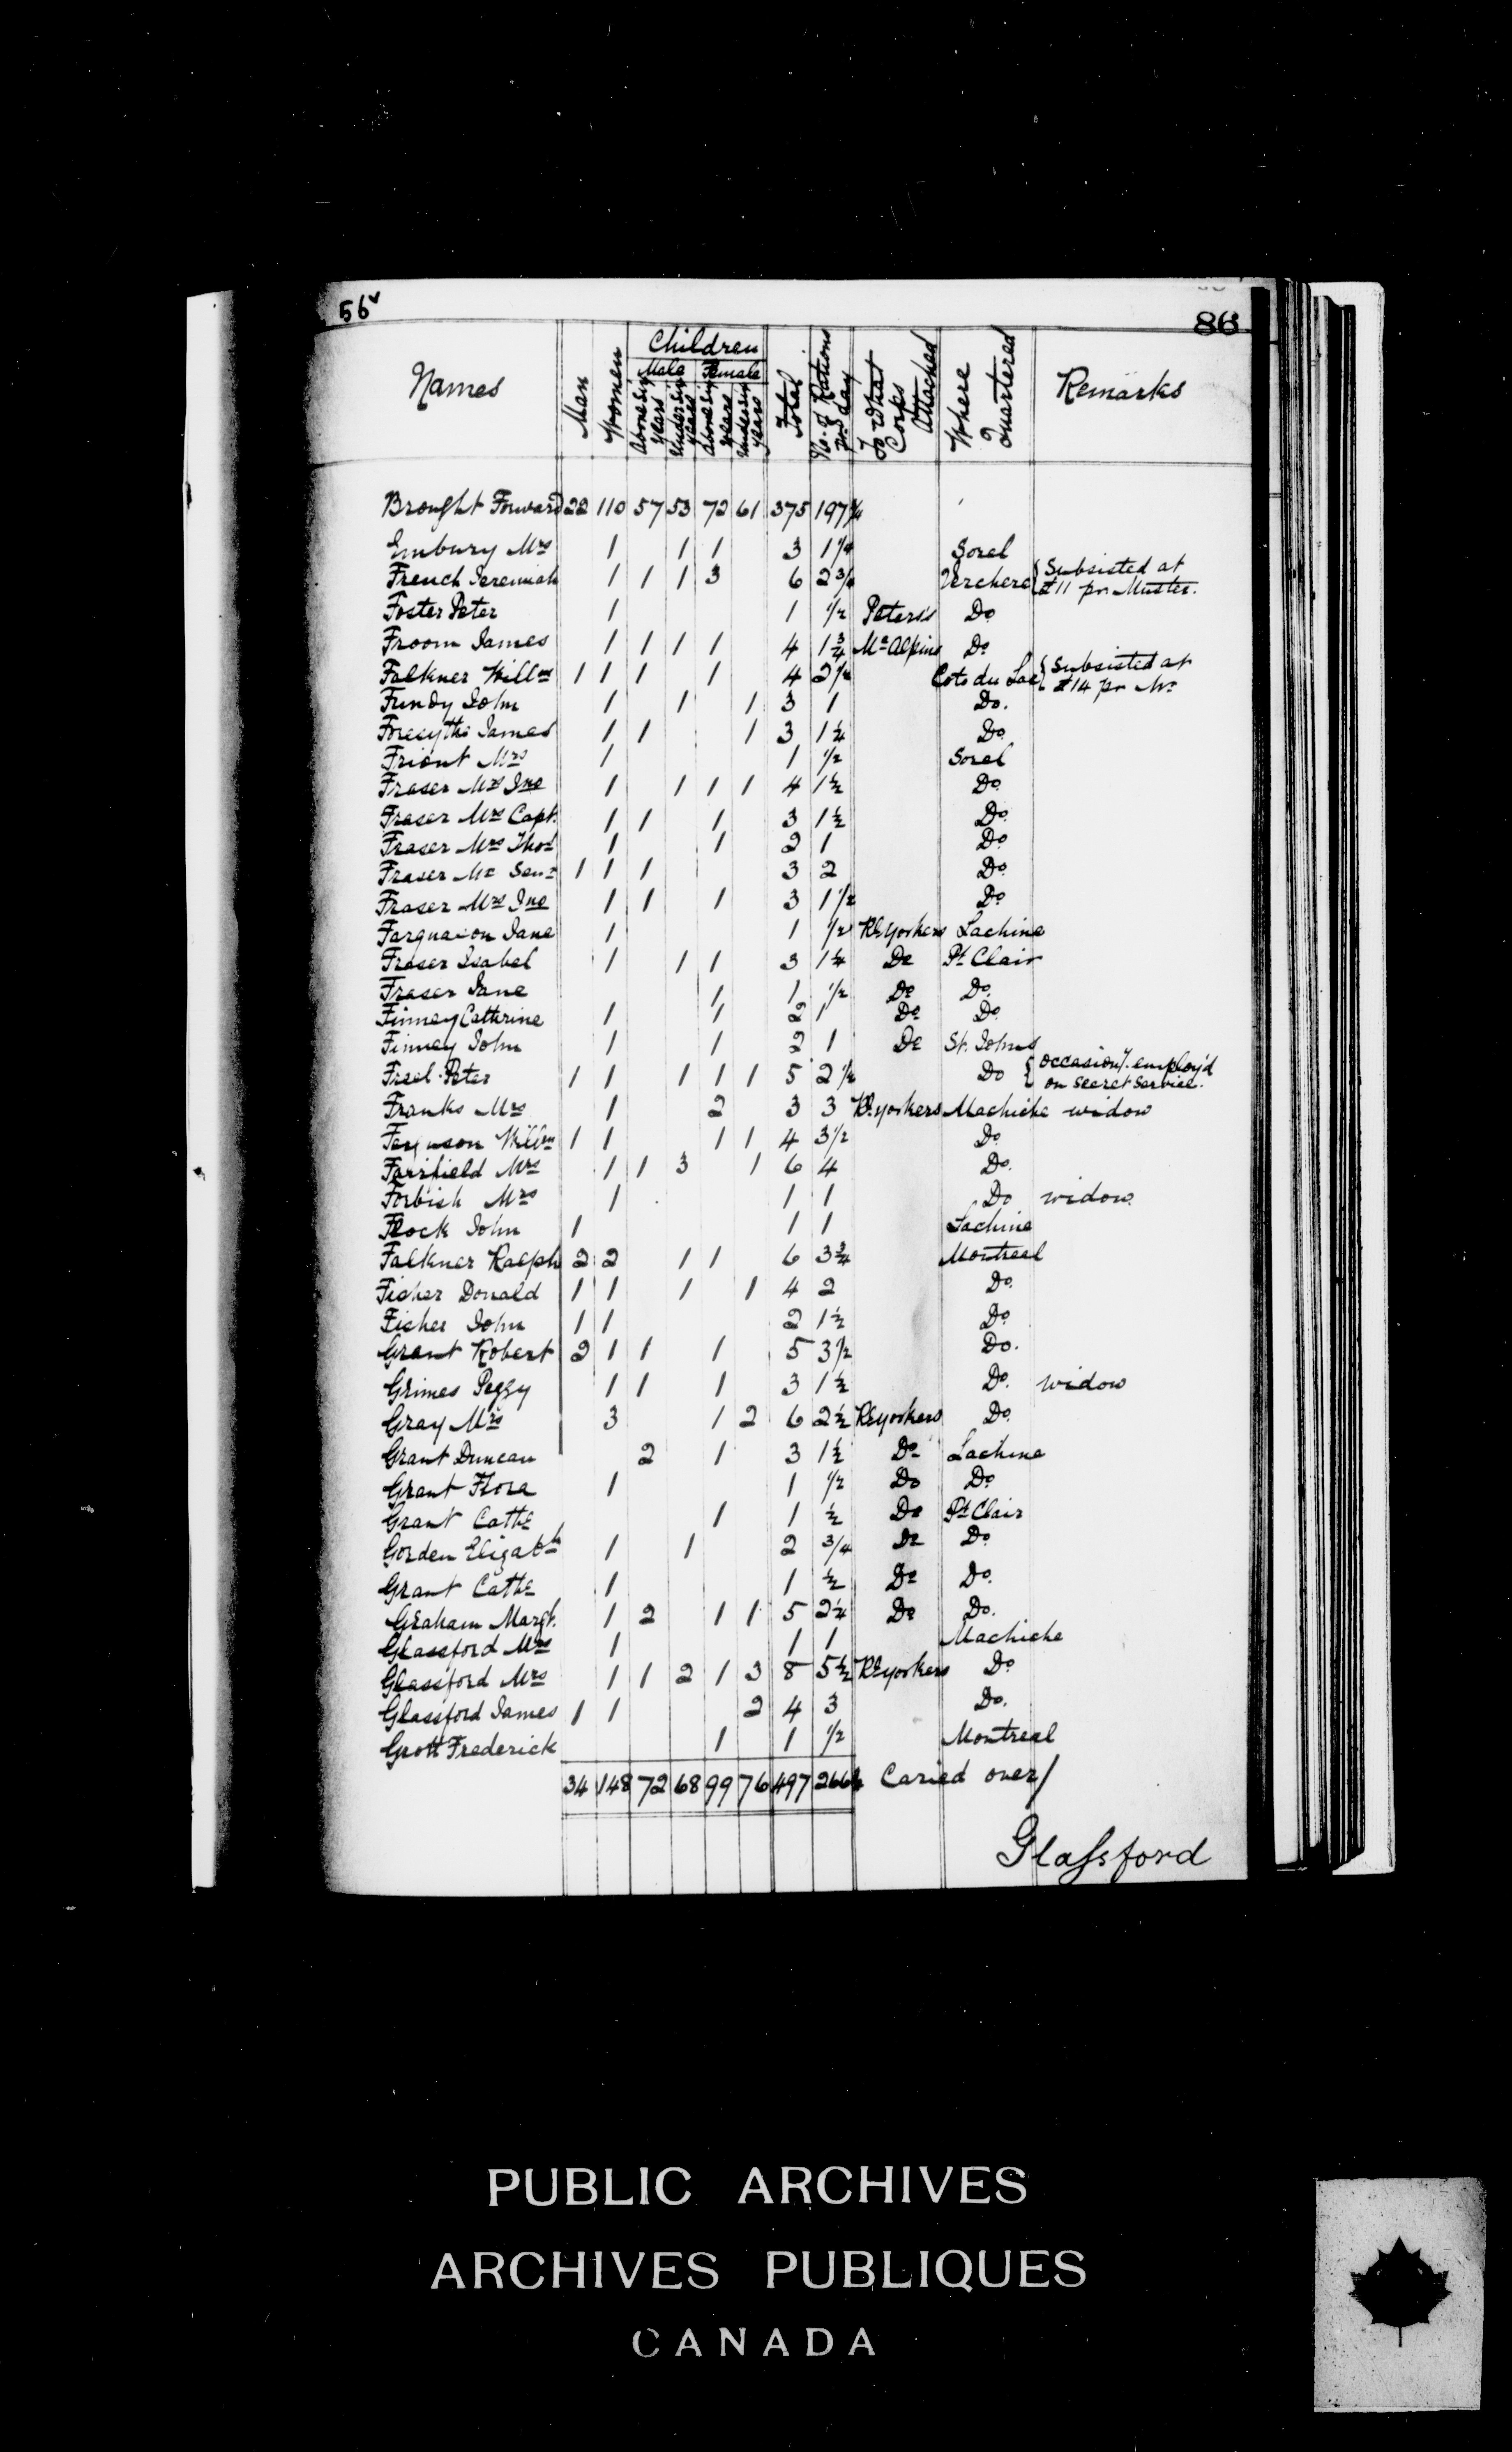 56v
86
Names Man Women Children Total No. of Rations pr. day To What Corps Attached Where Quartered Remarks
Male Female
Above Six years Under Six years Above Six years Under Six years
Brought Forward 22 110 57 53 72 61 375 197 3/4
Embury Mrs 1 1 1 3 1 1/4 Sorel
French Jeremiah 1 1 1 3 6 2 3/4 Verchere { Subsisted at £11 pr. Muster.
Foster Peter 1 1 1/2 Peters's Do
Froom James 1 1 1 1 4 1 3/4 McAlpins Do
Falkner Willm 1 1 1 1 4 2 1/2 Coto du Lac { Subsisted at £14 pr Mr
Fundy John 1 1 1 3 1 Do.
Forsyths James 1 1 1 3 1 1/4 Do
Friont Mrs 1 1 1/2 Sorel
Fraser Mrs Jno 1 1 1 1 4 1 1/2 Do
Fraser Mrs Capt. 1 1 1 3 1 1/2 Do
Fraser Mrs Thos 1 1 2 1 Do
Fraser Mr Senr 1 1 1 3 2 Do
Fraser Mrs Jno 1 1 1 3 1 1/2 Do
Farquason Jane 1 1 1/2 Rl yorkers Lachine
Fraser Isabel 1 1 1 3 1 1/4 Do Pt Clair
Fraser Jane 1 1 1/2 Do Do
Finney Catherine 1 1 2 1 Do Do
Finney John 1 1 2 1 Do St. Johns
Freel Peter 1 1 1 1 1 5 2 1/2 Do { occasiony. employ'd on Secret Service.
Franks Mrs 1 2 3 3 Rl. yorkers Machiche widow
Ferguson Willm 1 1 1 1 4 3 1/2 Do
Fairfield Mrs 1 1 3 1 6 4 Do.
Forbish Mrs 1 1 1 Do widow
Flock John 1 1 1 Lachine
Falkner Ralph 2 2 1 1 6 3 3/4 Montreal
Fisher Donald 1 1 1 1 4 2 Do.
Fisher John 1 1 2 1 1/2 Do
Grant Robert 2 1 1 1 5 3 1/2 Do.
Grimes Peggy 1 1 1 3 1 1/2 Do. widow
Gray Mrs 3 1 2 6 2 1/2 Rl yorkers Do
Grant Duncan 2 1 3 1 1/2 Do Lachine
Grant Flora 1 1 1/2 Do Do
Grant Cathe 1 1 1/2 Do Pt Clair
Gorden Elizabth 1 1 2 3/4 Do Do
Grant Cathe 1 1 1/2 Do Do.
Graham Margt. 1 2 1 1 5 2 1/4 Do Do.
Glassford Mrs 1 1 1 Machiche
Glassford Mrs 1 1 2 1 3 8 5 1/2 Rl yorkers Do
Glassford James 1 1 2 4 3 Do.
Grott Frederick 1 1 1/2 Montreal
34 148 72 68 99 76 497 266 Caried over/
Glaſsford
PUBLIC ARCHIVES
ARCHIVES PUBLIQUES
CANADA